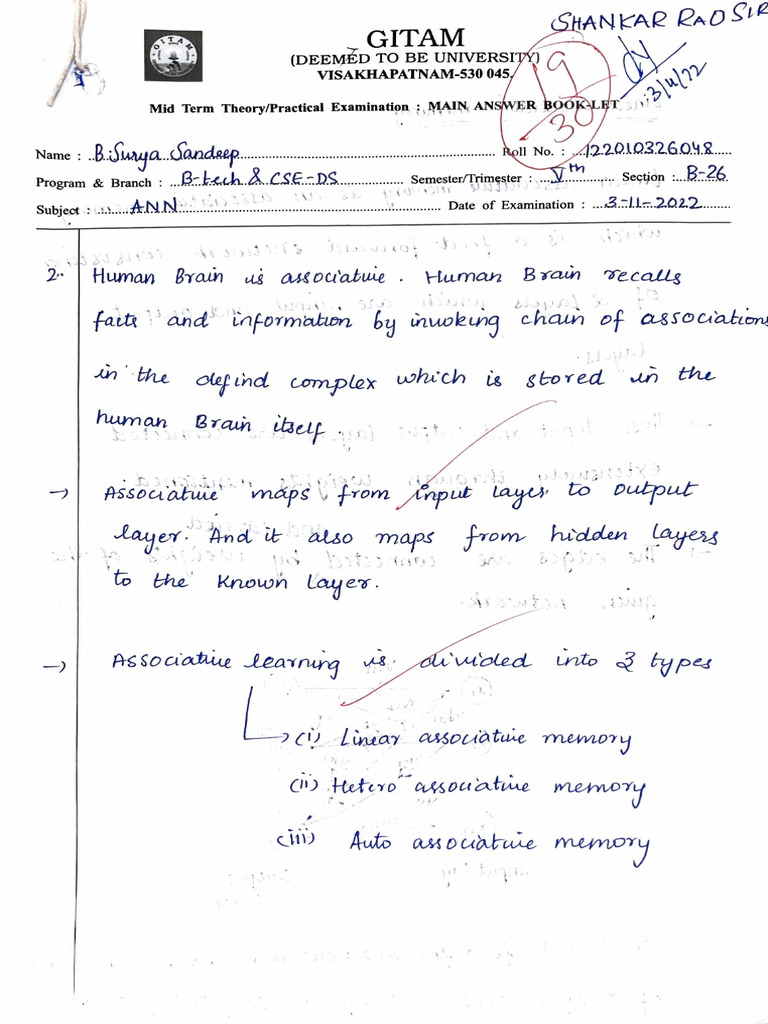 SHANKAR RAO SIR
GITAM
(DEEMED TO BE UNIVERSITY)
VISAKHAPATNAM-530 045.
19
30
3/11/22
Mid Term Theory/Practical Examination : MAIN ANSWER BOOK-LET
Name : B.Surya Sandeep Roll No. : 122010326048
Program & Branch : B-tech & CSE-DS Semester/Trimester : Vth Section : B-26
Subject : ANN Date of Examination : 3-11-2022
2.. Human Brain is associative. Human Brain recalls
facts and information by invoking chain of associations
in the defind complex which is stored in the
human Brain itself.
→ Associative maps from input layer to output
layer. And it also maps from hidden layers
to the known layer.
→ Associative learning is divided into 3 types
→ (i) Linear associative memory
(ii) Hetero associative memory
(iii) Auto associative memory